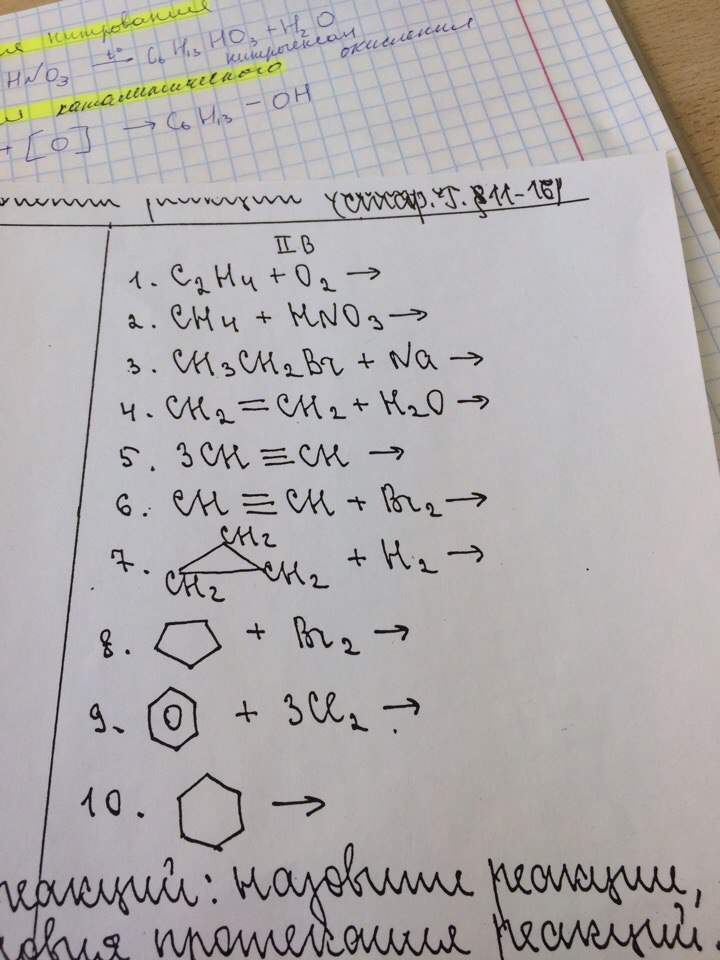 нитрования
HNO₃ t° → C₆H₁₃NO₃ + H₂O
нитрогексан
каталитического окисления
+ [O] → C₆H₁₃ – OH
реакции
II В
1. C₂H₄ + O₂ →
2. CH₄ + HNO₃ →
3. CH₃CH₂Br + Na →
4. CH₂ = CH₂ + H₂O →
5. 3CH ≡ CH →
6. CH ≡ CH + Br₂ →
CH₂
7. CH₂ CH₂ + H₂ →
8. + Br₂ →
9. + 3Cl₂ →
10. →
реакций: назовите реакции,
протекания реакций.